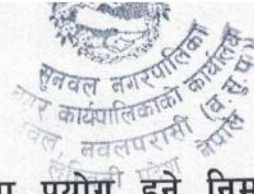 सुनवल नगरपालिका
नगर कार्यपालिकाको कार्यालय
सुनवल नवलपरासी (ब.सु.प)
लुम्बिनी प्रदेश नेपाल
प्रयोग हुने